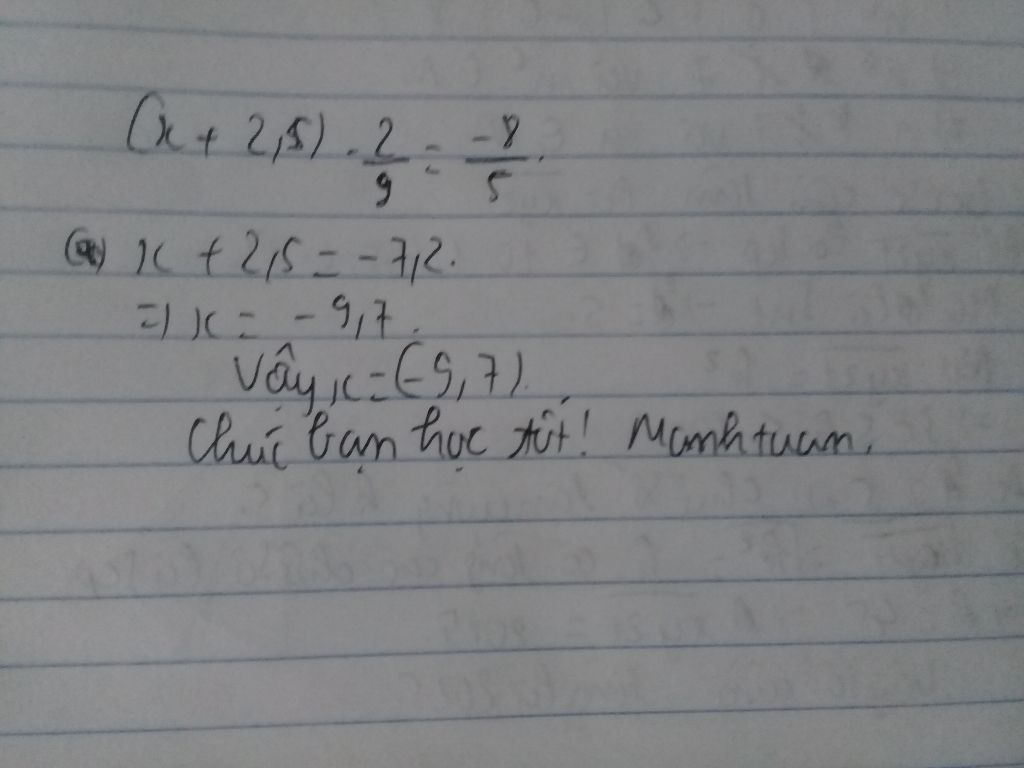 (x + 2,5) . 2/9 = -8/5.
x + 2,5 = -7,2.
=> x = -9,7.
Vậy x = (-9,7).
Chúc bạn học tốt! Manhtuan.